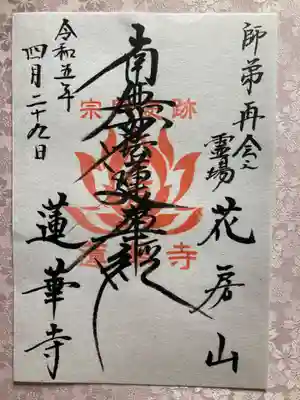 師弟再会之
霊場
花房山
南無妙法蓮華経
宗門史跡
令和五年
四月二十九日
蓮華寺